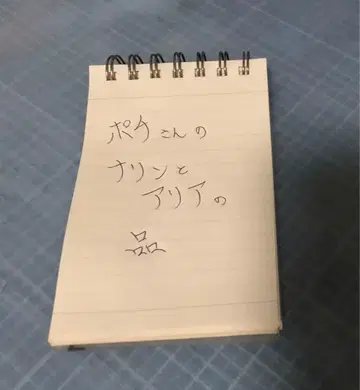 ポチさんの
ナリンと
アリアの
品